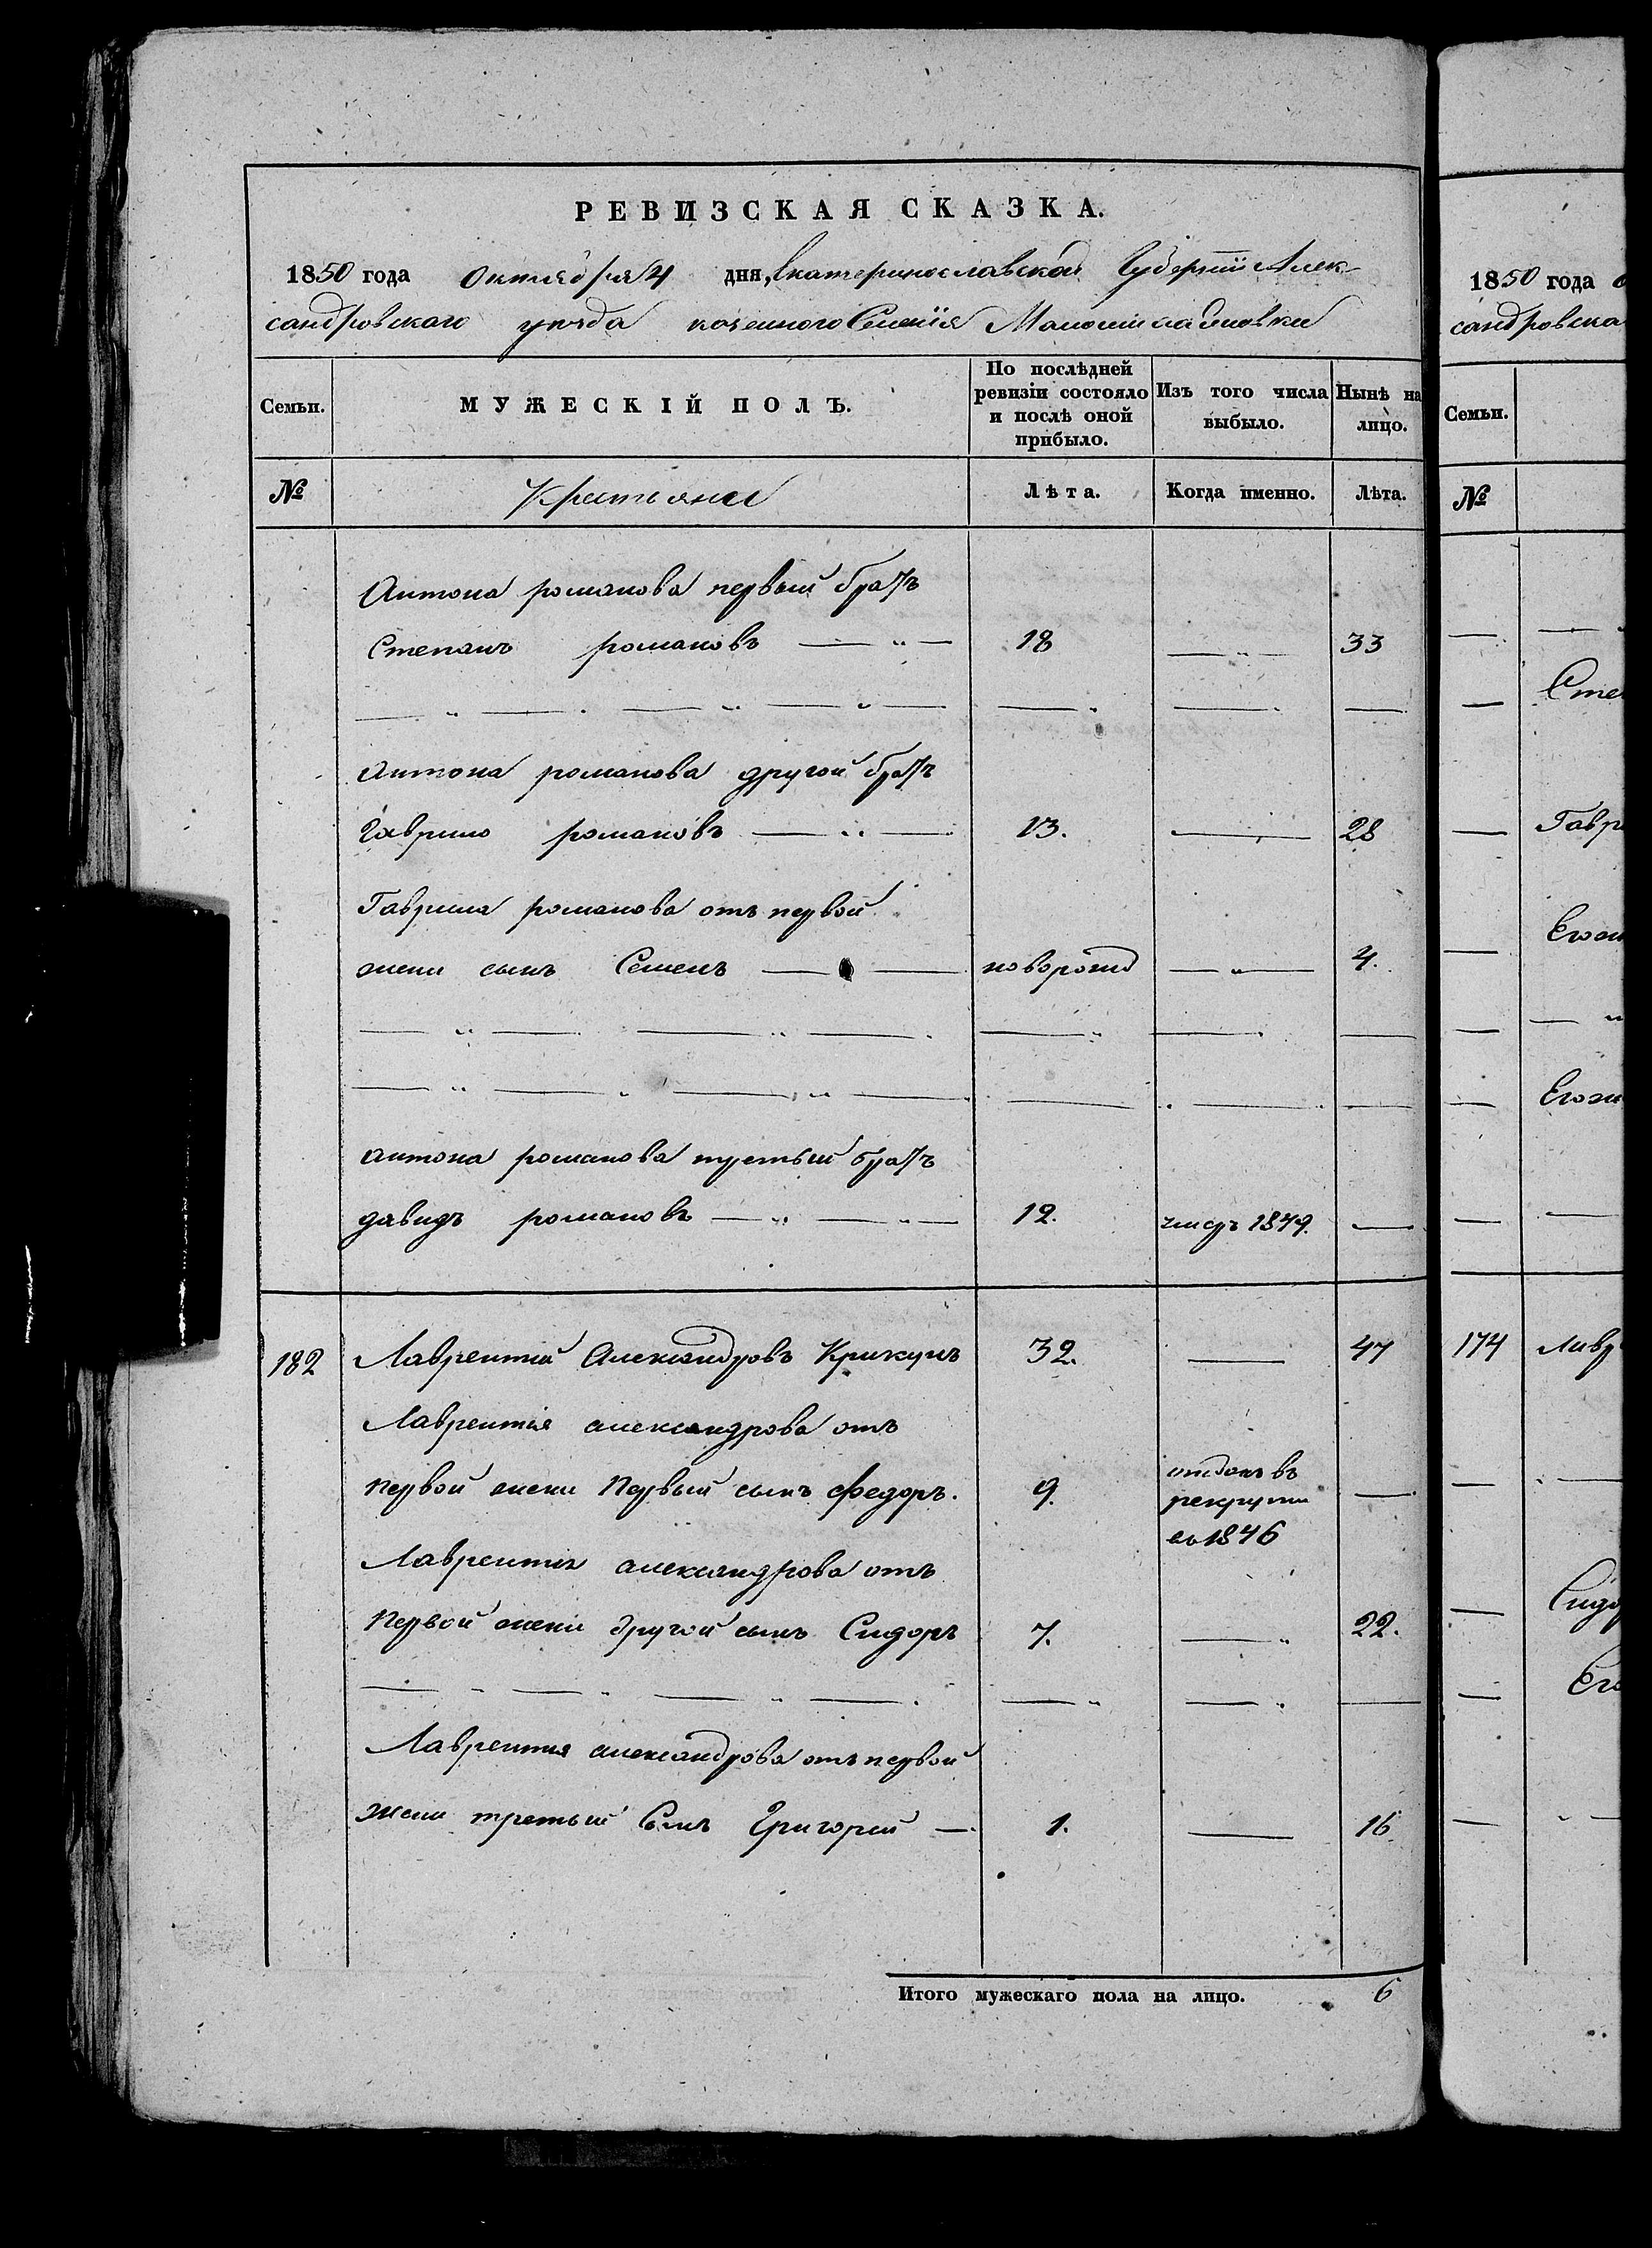 РЕВИЗСКАЯ СКАЗКА.
1850 года Октября 4 дня, Екатеринославской Губернiи Алек-
сандровскаго уѣзда казенного Селенiя
Семьи. МУЖЕСКІЙ ПОЛЪ. По послѣдней ревизіи состояло и послѣ оной прибыло. Изъ того числа выбыло. Нынѣ на лицо.
№ Крестьяни Лѣта. Когда именно. Лѣта.
Антона романова первый братъ
Степанъ романовъ 18 33
Антона романова другой братъ
Гаврило романовъ 13. 28
Гаврила романова отъ первой
жени сынъ Семенъ новорожд 4.
антона романова третьий братъ
давидъ романовъ 12. умеръ 1849.
182 Лаврентий Александровъ Крикунъ 32. 47
Лаврентiя александрова отъ
первой жени Первый сынъ Федоръ. 9. отданъ въ
рекруты
въ 1846
Лаврентiя александрова отъ
Первой жени другой сынъ Сидоръ 7. 22.
Лаврентия александрова отъ первой
жени третьий Сынъ Григорий 1. 16
Итого мужескаго пола на лицо. 6
1850 года
сандровска
Семьи.
№
Сте
Гавр
Его
Его
174 Лавр
Сидо
Его